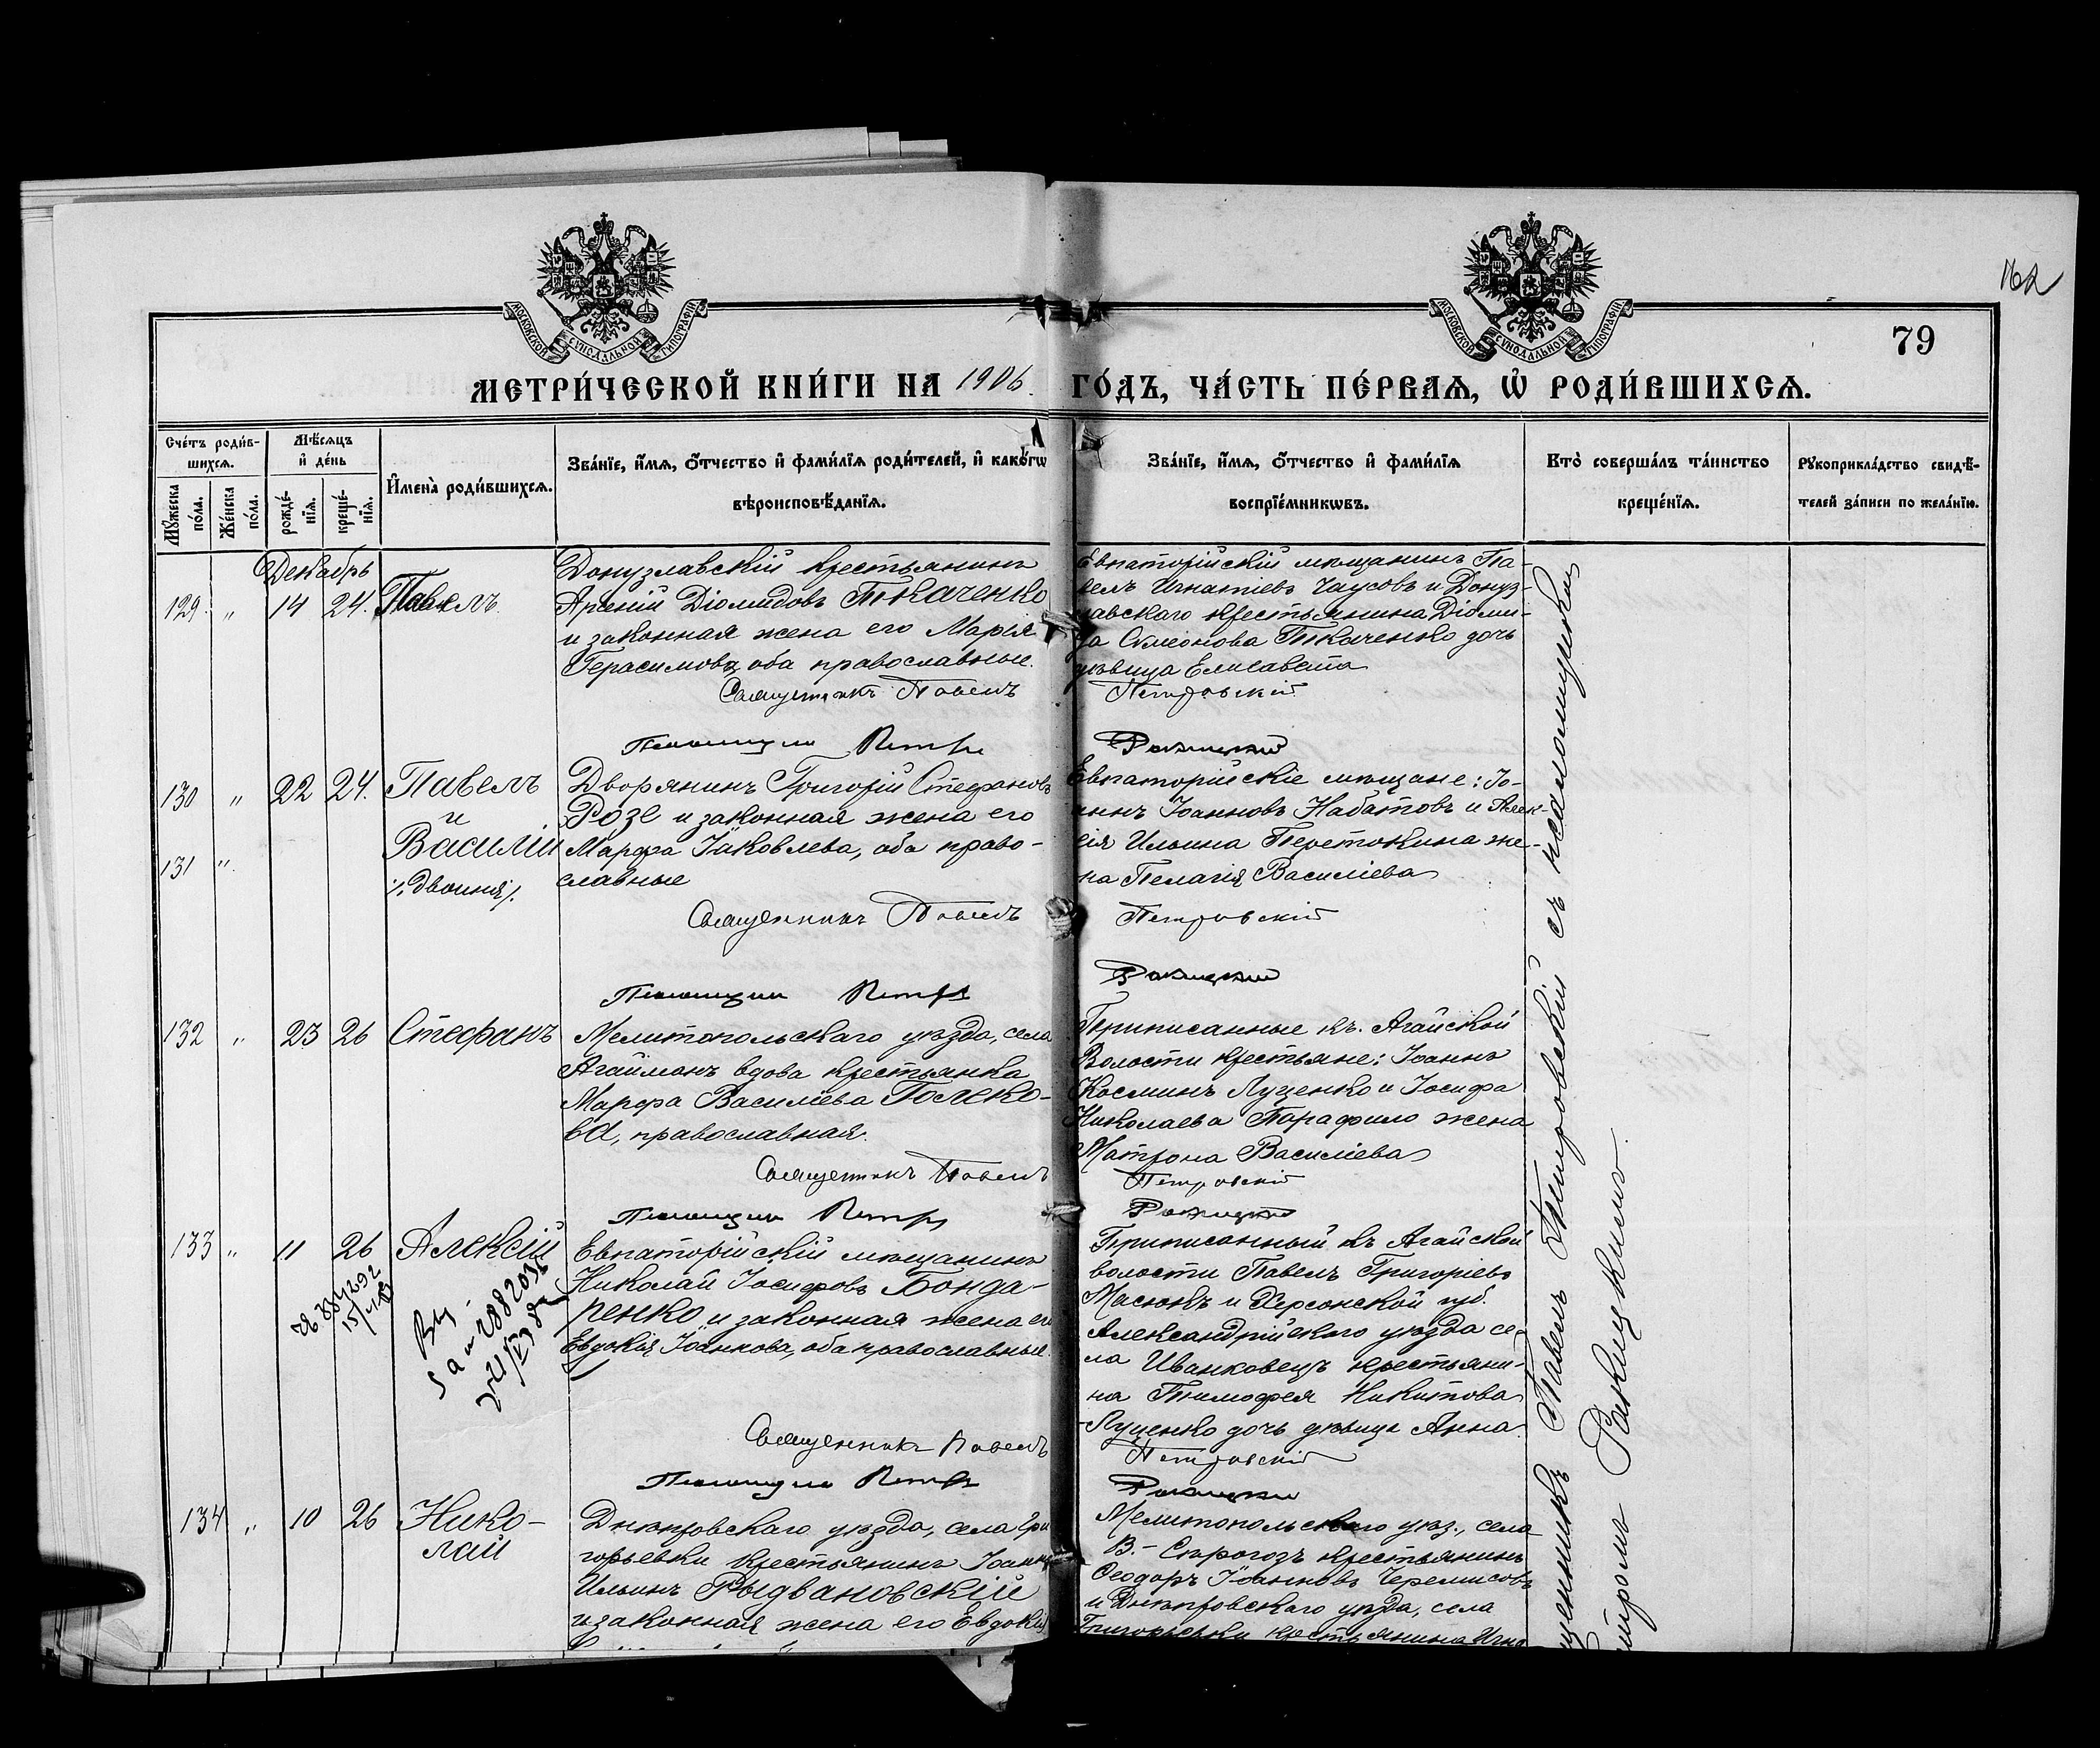 162
79
МОСКОВСКОЙ СѴНОДАЛЬНОЙ ТИПОГРАФІИ
МОСКОВСКОЙ СѴНОДАЛЬНОЙ ТИПОГРАФІИ
МЕТРИ́ЧЕСКОЙ КНИ́ГИ НА 1906 ГО́ДЪ, ЧА́СТЬ ПЕ́РВАѦ, Ѡ҆ РОДИ́ВШИХСѦ.
Сче́тъ роди́в-
шихсѧ.
Мꙋ́жеска по́ла.
Же́нска по́ла.
Мѣ́сѧцъ
и҆ де́нь
рожде́-
нїѧ.
креще́-
нїѧ.
И҆мена̀ роди́вшихсѧ.
Зва́нїе, и҆́мѧ, ѻ҆́тчество и҆ фами́лїѧ роди́телей, и҆ како́гѡ
вѣроисповѣ́данїѧ.
Зва́нїе, и҆́мѧ, ѻ҆́тчество и҆ фами́лїѧ
воспрїе́мникѡвъ.
Кто̀ соверша́лъ та́инство
креще́нїѧ.
Рꙋкоприкла́дство свидѣ́-
телей за́писи по жела́нїю.
Декабрь
129. " 14 24. Павелъ.
Донузлавскій крестьянинъ
Арсеній Діомидовъ Ткаченко
и законная жена его Марья
Герасимова, оба православные.
Священникъ Павелъ
Евпаторійскій мѣщанинъ Па-
велъ Игнатіевъ Чаусовъ и Донуз-
лавскаго крестьянина Діоми-
да Симеонова Ткаченко дочь
дѣвица Елисавета
Петровскій
Псаломщикъ Петръ
Ракицкій
130 " 22 24. Павелъ
и
131 " Василій
/. двоиня /.
Дворянинъ Григорій Стефановъ
Розе и законная жена его
Марфа Іаковлева, оба право-
славные
Священникъ Павелъ
Евпаторійскіе мѣщане: Іо-
аннъ Іоанновъ Набатовъ и Алек-
сія Ильина Перетокина же-
на Пелагія Василіева
Петровскій
Псаломщикъ Петръ
Ракицкій
132 " 23 26 Стефанъ
Мелитопольскаго уѣзда, села
Агайманъ вдова крестьянка
Марфа Василіева Голеко-
ва, православная.
Священникъ Павелъ
Приписанные къ Агайской
Волости крестьяне: Іоаннъ
Косминъ Луценко и Іосифа
Николаева Парафило жена
Матрона Василіева
Петровскій
Псаломщикъ Петръ
Ракицкій
133 " 11 26 Алексій
Евпаторійскій мѣщанинъ
Николай Іосифовъ Бонда-
ренко и законная жена его
Евдокія Іоаннова, оба православные.
Священникъ Павелъ
Приписанный къ Агайской
волости Павелъ Григоріевъ
Масюкъ и Херсонской губ.
Александрійскаго уѣзда се-
ла Иванковецъ крестьяни-
на Тимофея Никитова
Луценко дочь дѣвица Анна.
Петровскій
Псаломщикъ Петръ
Ракицкій
134 " 10 26 Нико-
лай
Днѣпровскаго уѣзда, села Гри
горьевки крестьянинъ Іоаннъ
Ильинъ Рыдвановскій
и законная жена его Евдокія
Мелитопольскаго уѣз., села
В.-Сѣрогозъ крестьянинъ
Феодоръ Іоанновъ Черемисовъ
и Днѣпровскаго уѣзда, села
Григорьевки крестьянина
Павелъ Петровскій съ псаломщикомъ
Ракицкимъ.